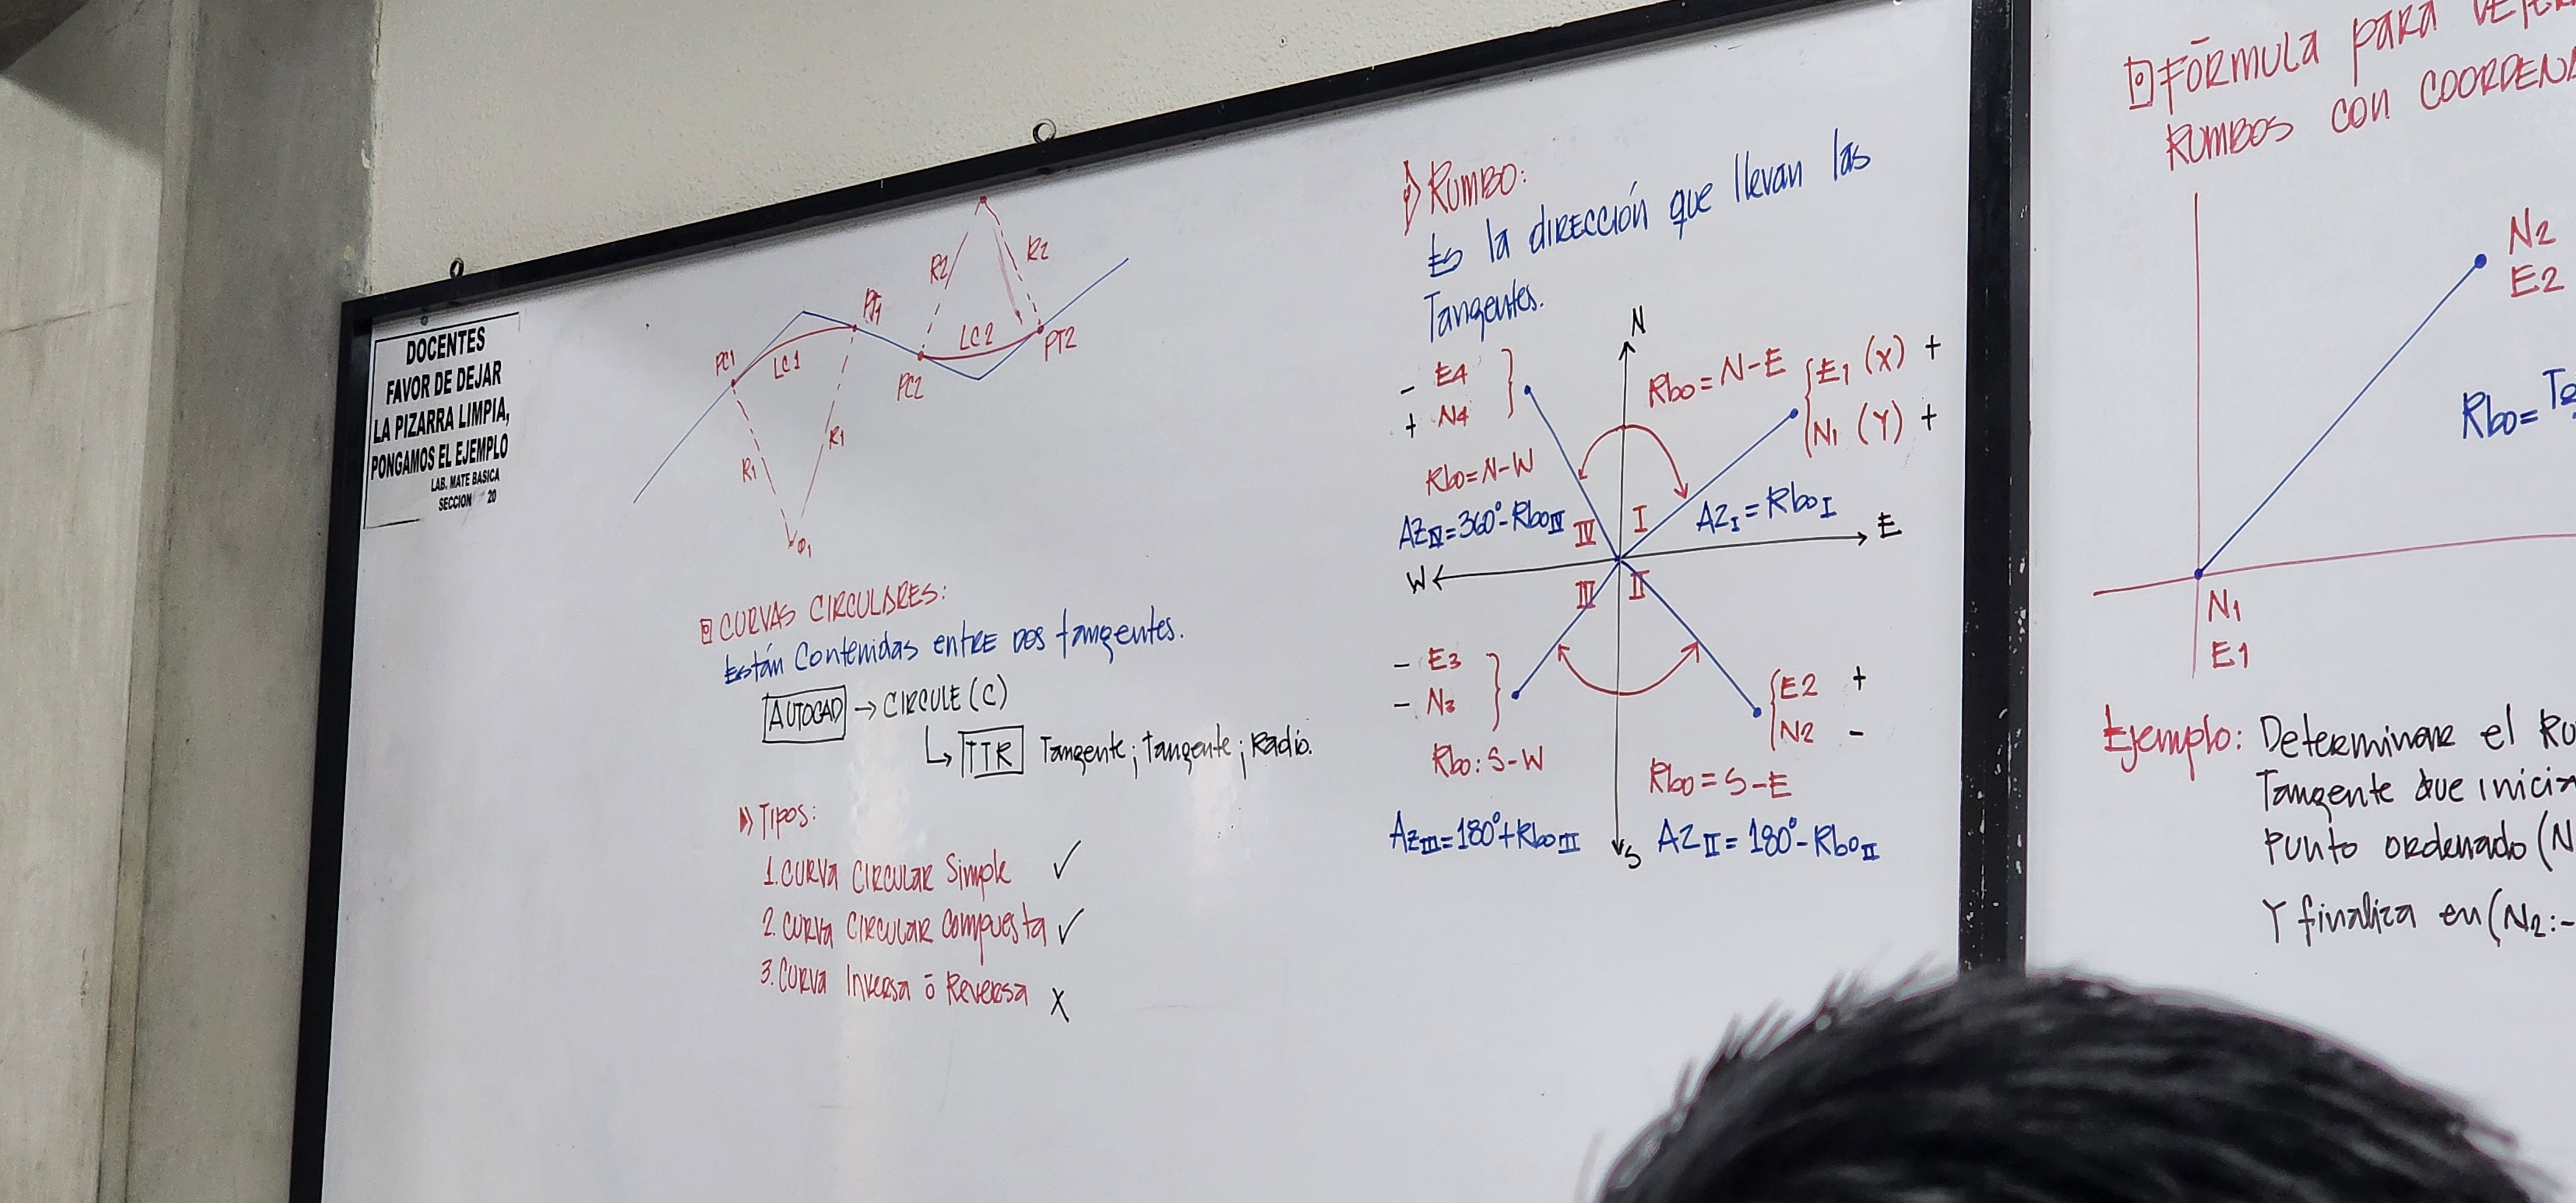 DOCENTES
FAVOR DE DEJAR
LA PIZARRA LIMPIA,
PONGAMOS EL EJEMPLO
LAB. MATE BASICA
SECCION 20
PC1
LC1
PT1
R1
R1
O1
R2
R2
LC2
PC2
PT2
CURVAS CIRCULARES:
Están Contenidas entre dos tangentes.
AUTOCAD → CIRCULE (C)
↳ TTR Tangente; Tangente; Radio.
Tipos:
1. CURVA CIRCULAR Simple ✓
2. CURVA CIRCULAR Compuesta ✓
3. CURVA Inversa ó Reversa X
RUMBO:
Es la dirección que llevan las
Tangentes.
N
- E4
+ N4
Rbo = N-E
E1 (X) +
N1 (Y) +
Rbo = N-W
AzIV = 360° - RboIV
IV
I
AzI = RboI
E
W
III
II
- E3
- N3
Rbo: S-W
AzIII = 180° + RboIII
E2 +
N2 -
Rbo = S-E
S
AzII = 180° - RboII
FÓRMULA para
RUMBOS con
N2
E2
Rbo =
N1
E1
Ejemplo: Determinar el
Tangente que
Punto ordenado (N
Y finaliza en (N2:-